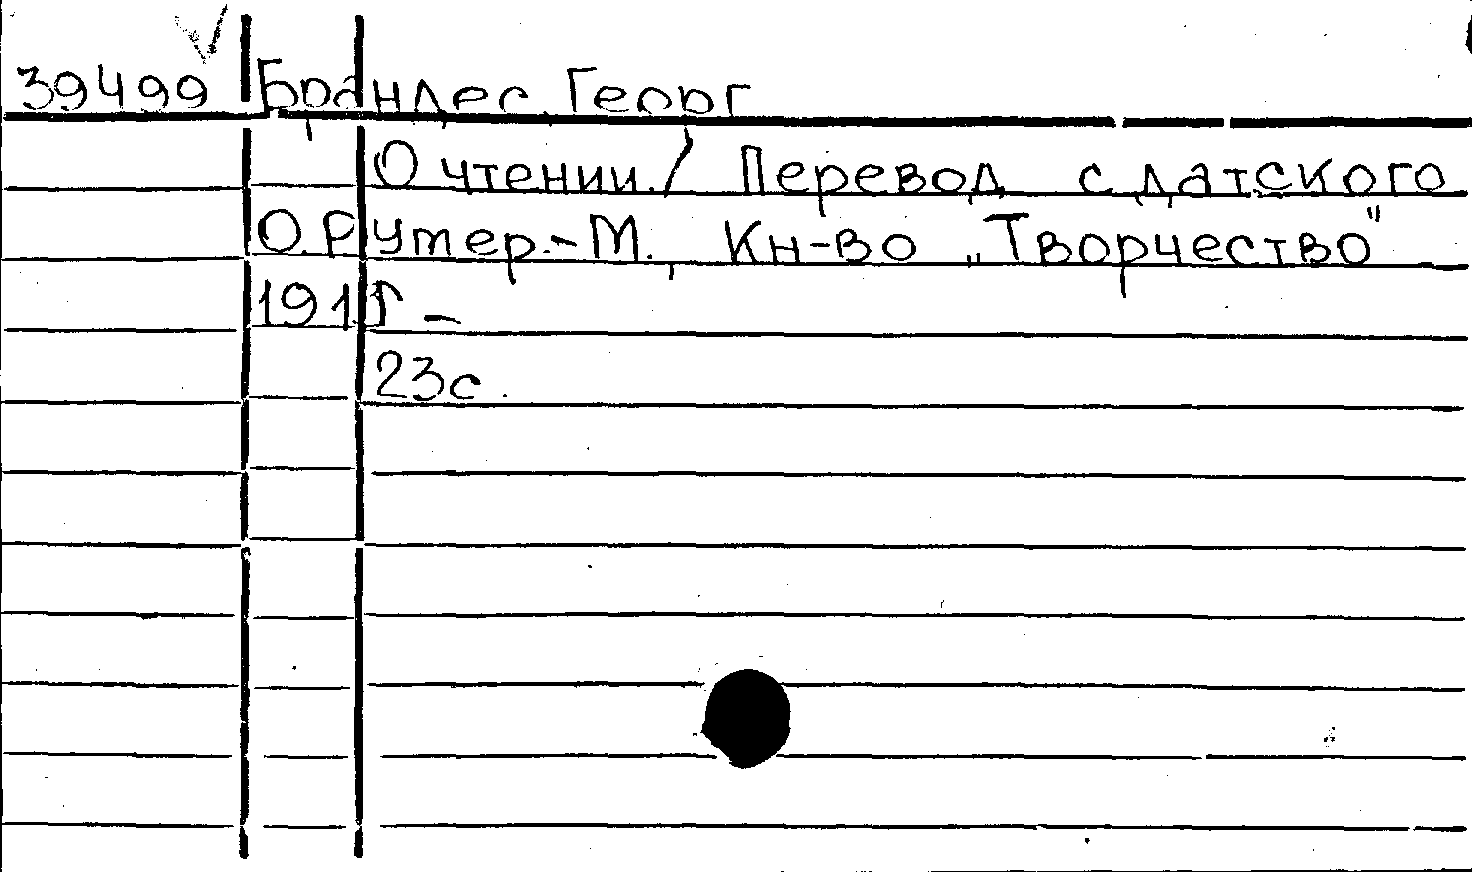 39499 Брандес Георг
О чтении./ Перевод с датского
О. Рутер.- М., Кн-во „Творчество"
1911г -
23с.